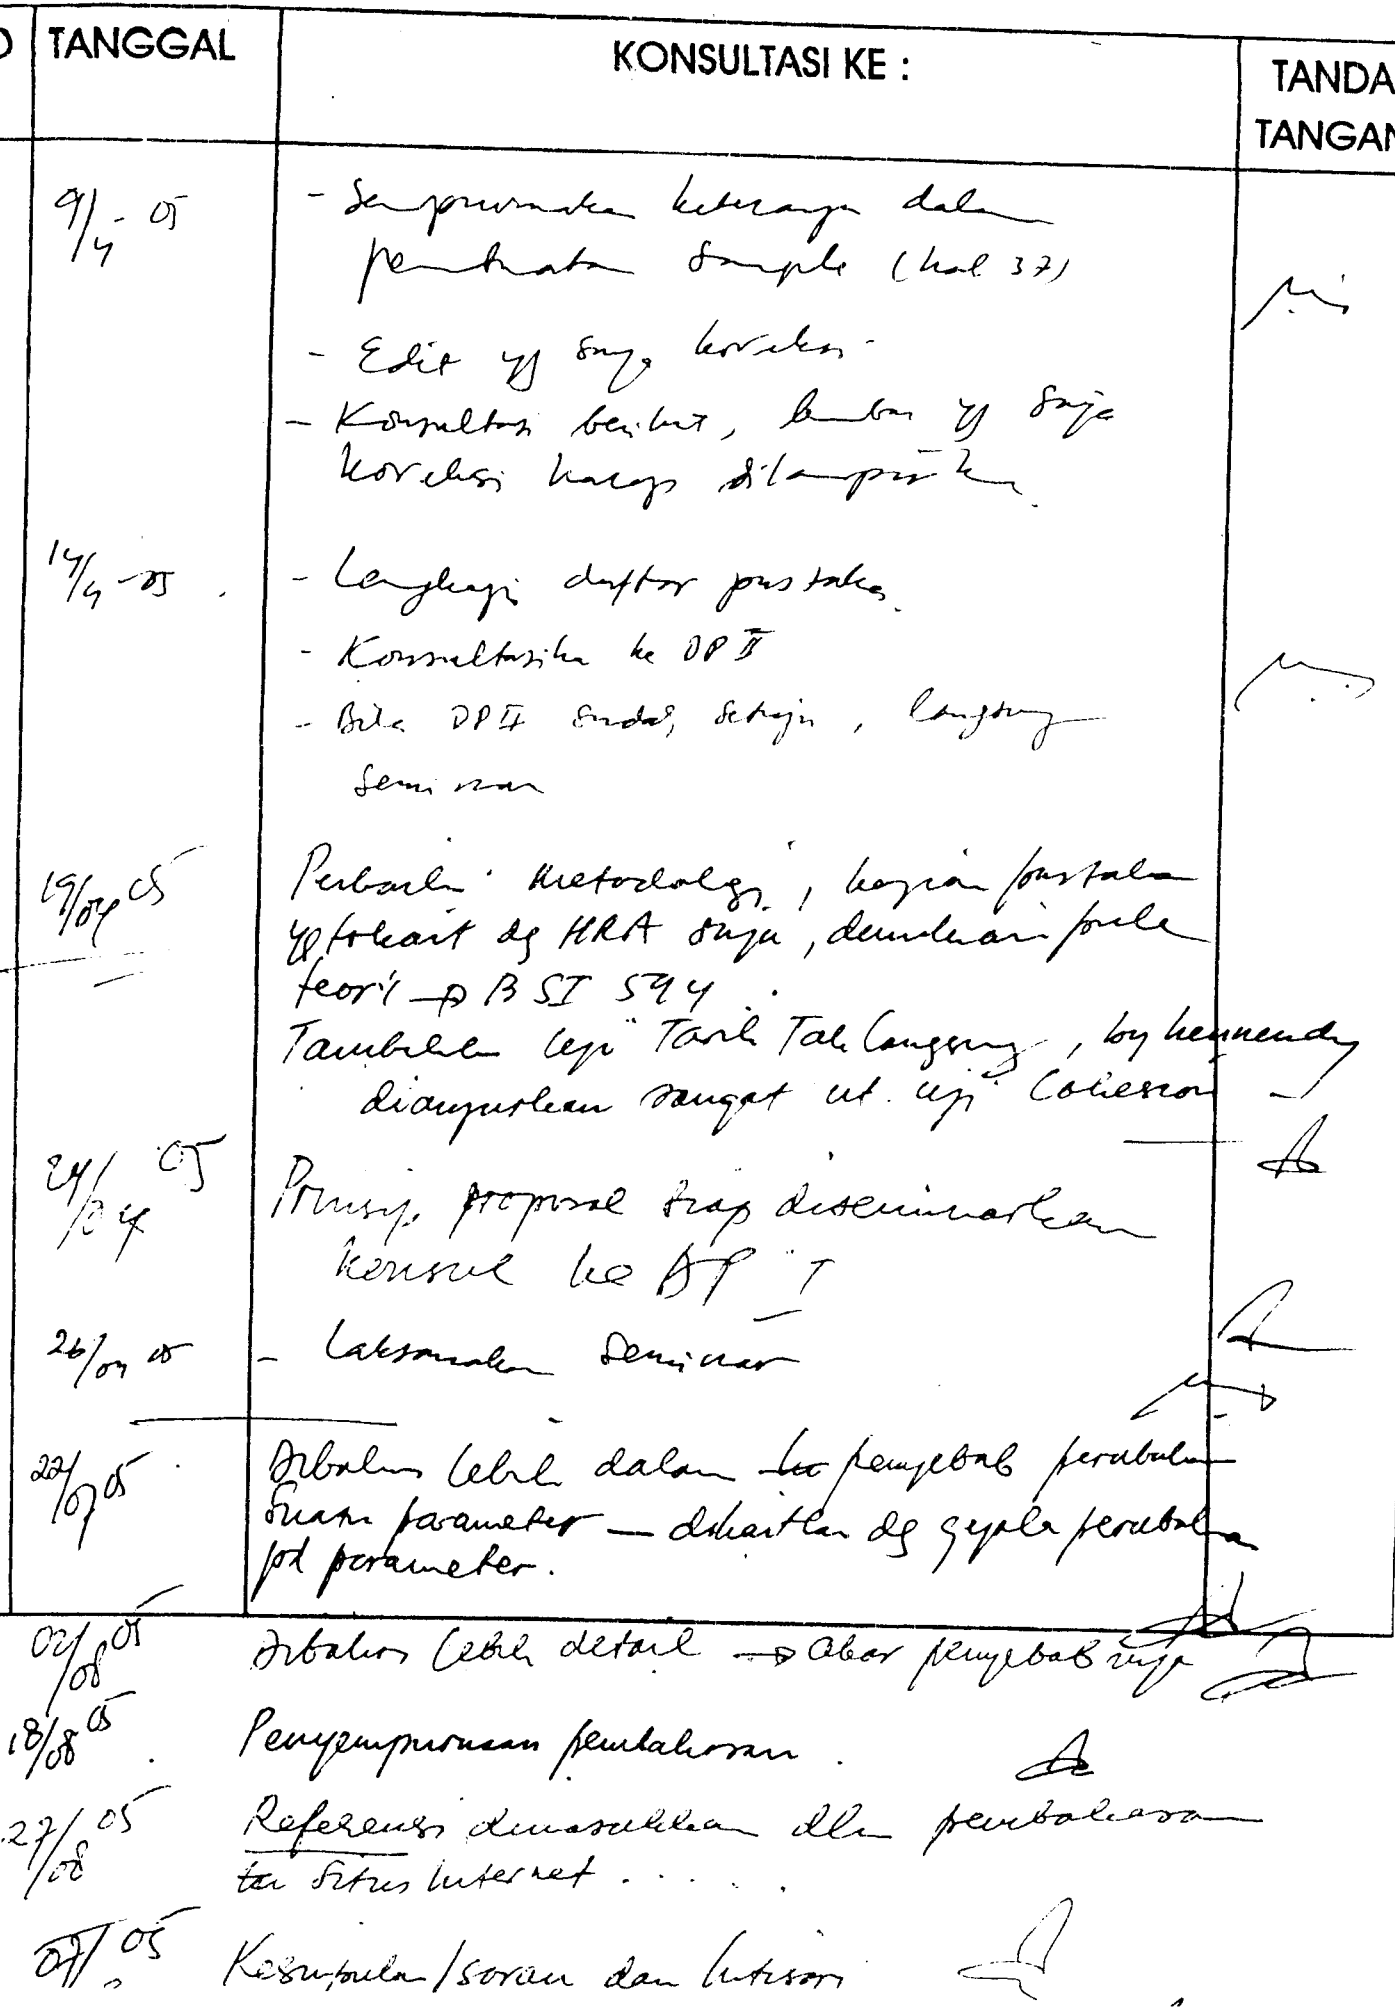 TANGGAL
KONSULTASI KE :
TANDA
TANGAN
9/4 - 05
- Sempurnakan keterangan dalam
pembuatan sample (hal 37)
- Edit yg saya koreksi
- Konsultasi berikut, lembar yg saya
koreksi harap dilampirkan
14/4 - 05
- Lengkapi daftar pustaka
- Konsultasikan ke DP II
- Bila DP II sudah setuju, langsung
seminar
19/04 05
Perbaiki metodologi, kajian pustaka
yg terkait dg HRA saja, demikian pula
teori → BSI 594
Tambahkan uji Tarik Tak langsung, by
dianjurkan sangat ut. uji Cohesion
24/04 05
Prinsip proposal siap diseminarkan
konsul ke DP I
26/04 05
- Laksanakan Seminar
22/07 05
Dibahas lebih dalam penyebab perubahan
suatu parameter — dikaitkan dg gejala perubahan
pd parameter.
02/08 05
Dibahas lebih detail → akar penyebabnya
18/08 05
Penyempurnaan pembahasan.
27/08 05
Referensi dimasukkan dlm pembahasan
Situs Internet . . . . .
07/ 05
Kesimpulan/saran dan Intisari